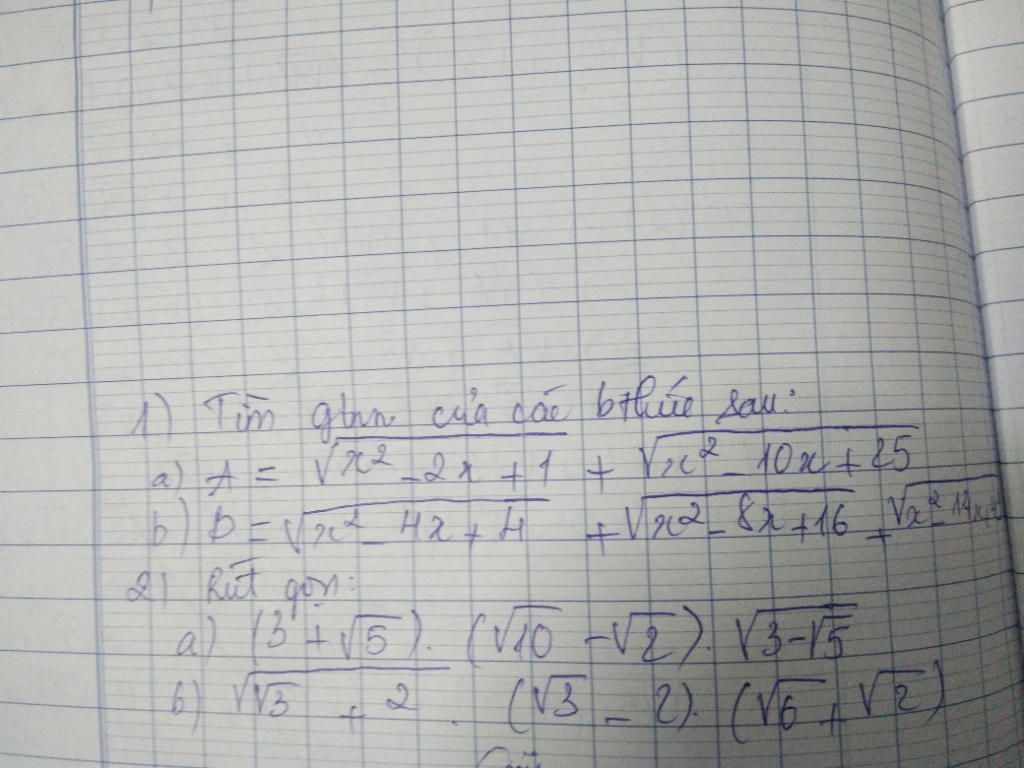 1) Tìm gtnn của các bthức sau:
a) A = √(x² - 2x + 1) + √(x² - 10x + 25)
b) B = √(x² - 4x + 4) + √(x² - 8x + 16) + √(x² - 14x +
2) Rút gọn:
a) (3 + √5) . (√10 - √2) . √(3 - √5)
b) √(√3 + 2) . (√3 - 2) . (√6 + √2)